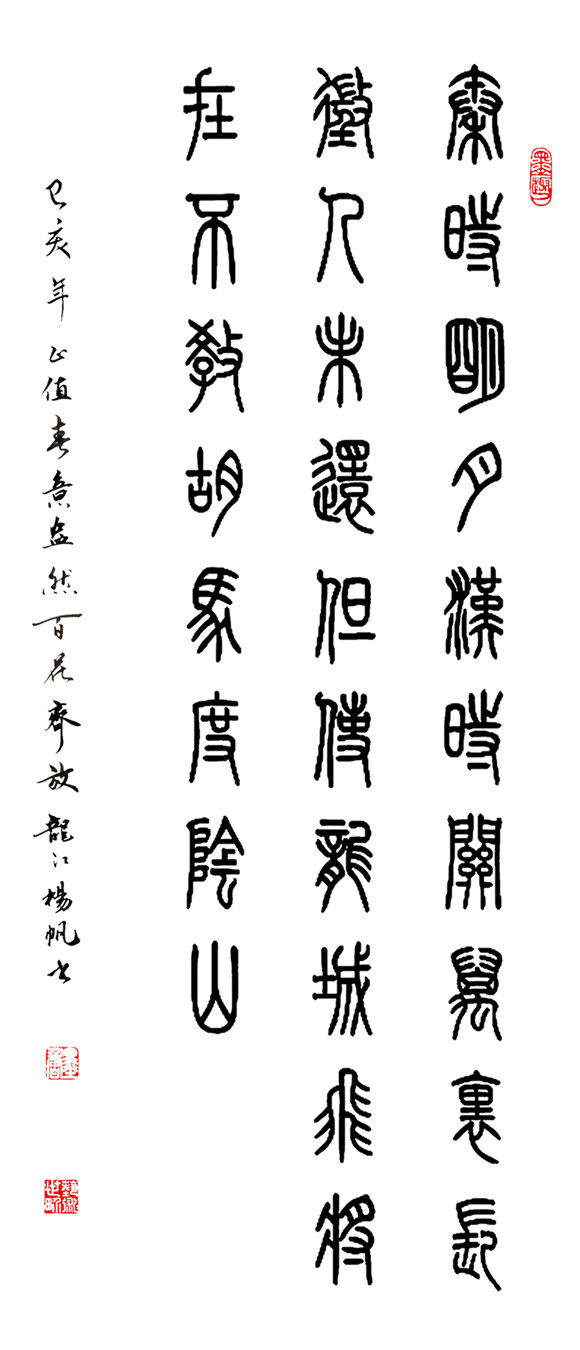 秦時明月漢時關萬裏長
徵人未還但使龍城飛將
在不教胡馬度陰山
己亥年正值春意盎然百花齊放龍江楊帆书